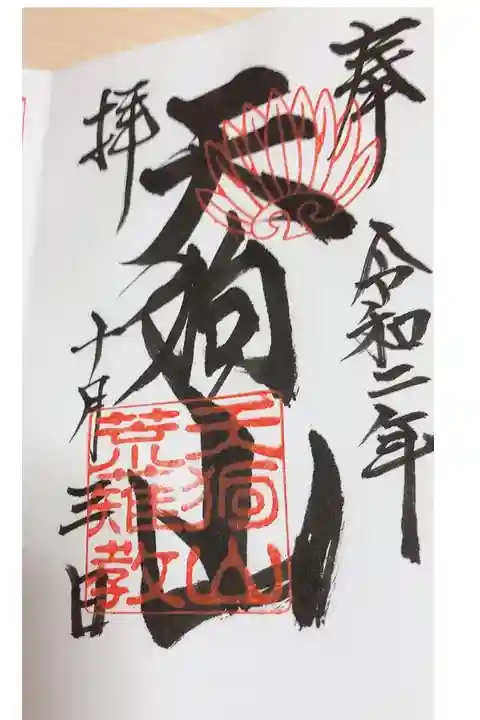 奉
令和二年
天狗山
天狗山
荒薙教
拝
十月三日